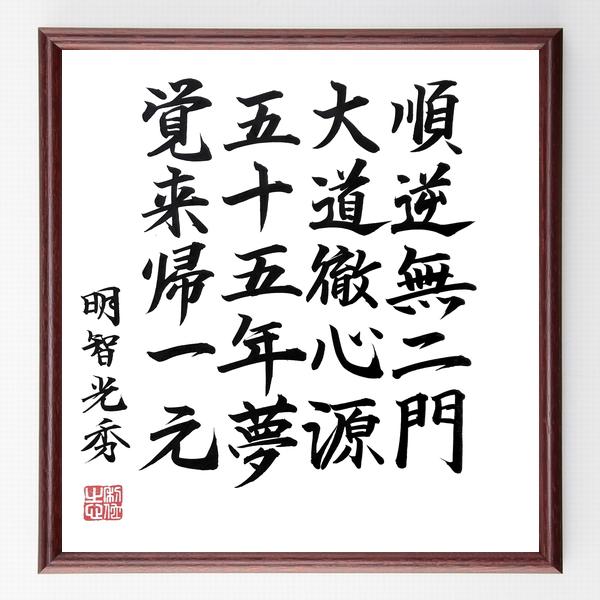 順逆無二門
大道徹心源
五十五年夢
覚来帰一元
明智光秀